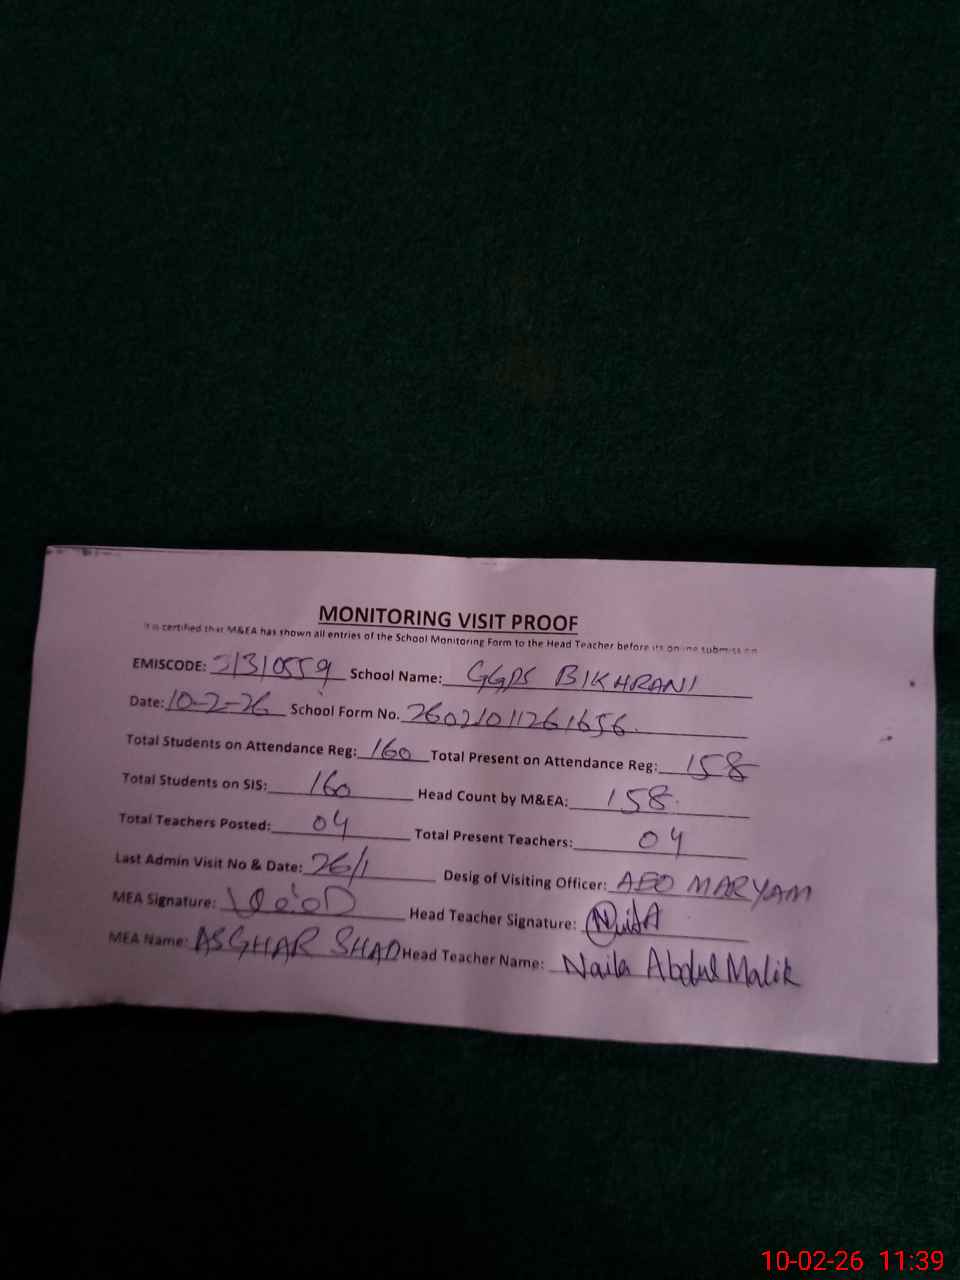 MONITORING VISIT PROOF
It is certified that M&EA has shown all entries of the School Monitoring Form to the Head Teacher before its online submission
EMISCODE: 31310559 School Name: GGPS BIKHRANI
Date: 10-2-26 School Form No. 26021011261656
Total Students on Attendance Reg: 160 Total Present on Attendance Reg: 158
Total Students on SIS: 160 Head Count by M&EA: 158
Total Teachers Posted: 04 Total Present Teachers: 04
Last Admin Visit No & Date: 26/1 Desig of Visiting Officer: AEO MARYAM
MEA Signature: Head Teacher Signature:
MEA Name: ASGHAR SHAD Head Teacher Name: Naila Abdul Malik
10-02-26 11:39